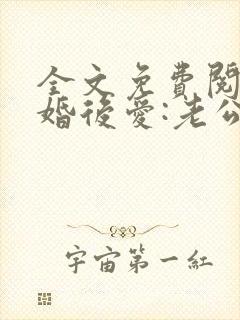 全文免費閱
婚後愛:老公
宇宙第一紅